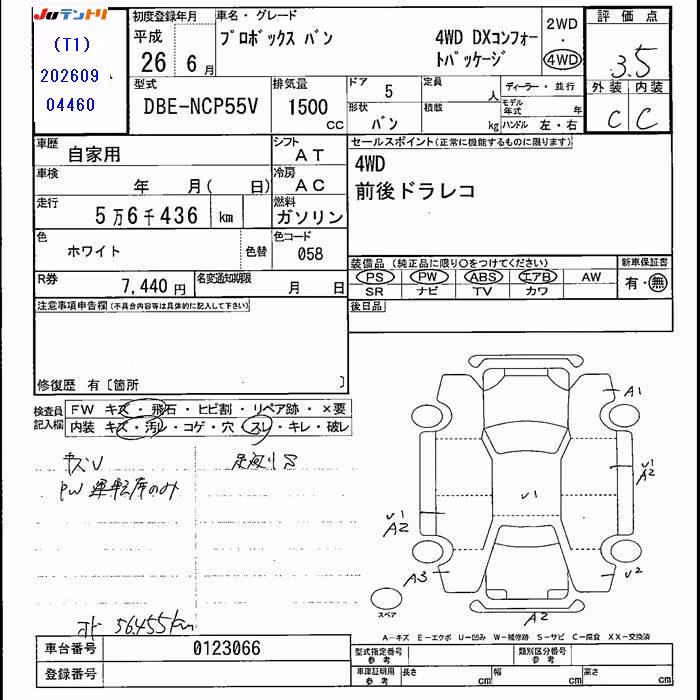 JUテントリ
(T1)
202609
04460
初度登録年月
平成
26 6月
車名・グレード
プロボックス バン
4WD DXコンフォー
トパッケージ
2WD
・
4WD
評価点
3.5
外装 内装
C C
型式
DBE-NCP55V
排気量
1500
cc
ドア
5
形状
バン
定員
人
積載
kg
ディーラー・並行
モデル年式
年
ハンドル 左・右
車歴
自家用
シフト
AT
車検
年 月( 日)
冷房
AC
走行
5万6千436 km
燃料
ガソリン
色
ホワイト
色替
色コード
058
R券
7,440 円
名変通知期限
月 日
セールスポイント(正常に機能するものに限ります)
4WD
前後ドラレコ
装備品(純正品に限り○をつけてください)
PS PW ABS エアB AW
SR ナビ TV カワ
新車保証書
有・無
後日品
注意事項申告欄(不具合内容等は具体的に記入して下さい)
修復歴 有〔箇所 〕
検査員
記入欄
FW キズ・飛石・ヒビ割・リペア跡・×要
内装 キズ・汚レ・コゲ・穴・スレ・キレ・破レ
キズU
PW 運転席のみ
オド 56455km
A1
U1
A2
U1
U1
A2
A3
U2
A2
スペア
A-キズ E-エクボ U-凹み W-補修跡 S-サビ C-腐食 XX-交換済
車台番号
0123066
登録番号
型式指定番号
参考
類別区分番号
参考
車庫証明用
参考
長さ cm 幅 cm 高さ cm